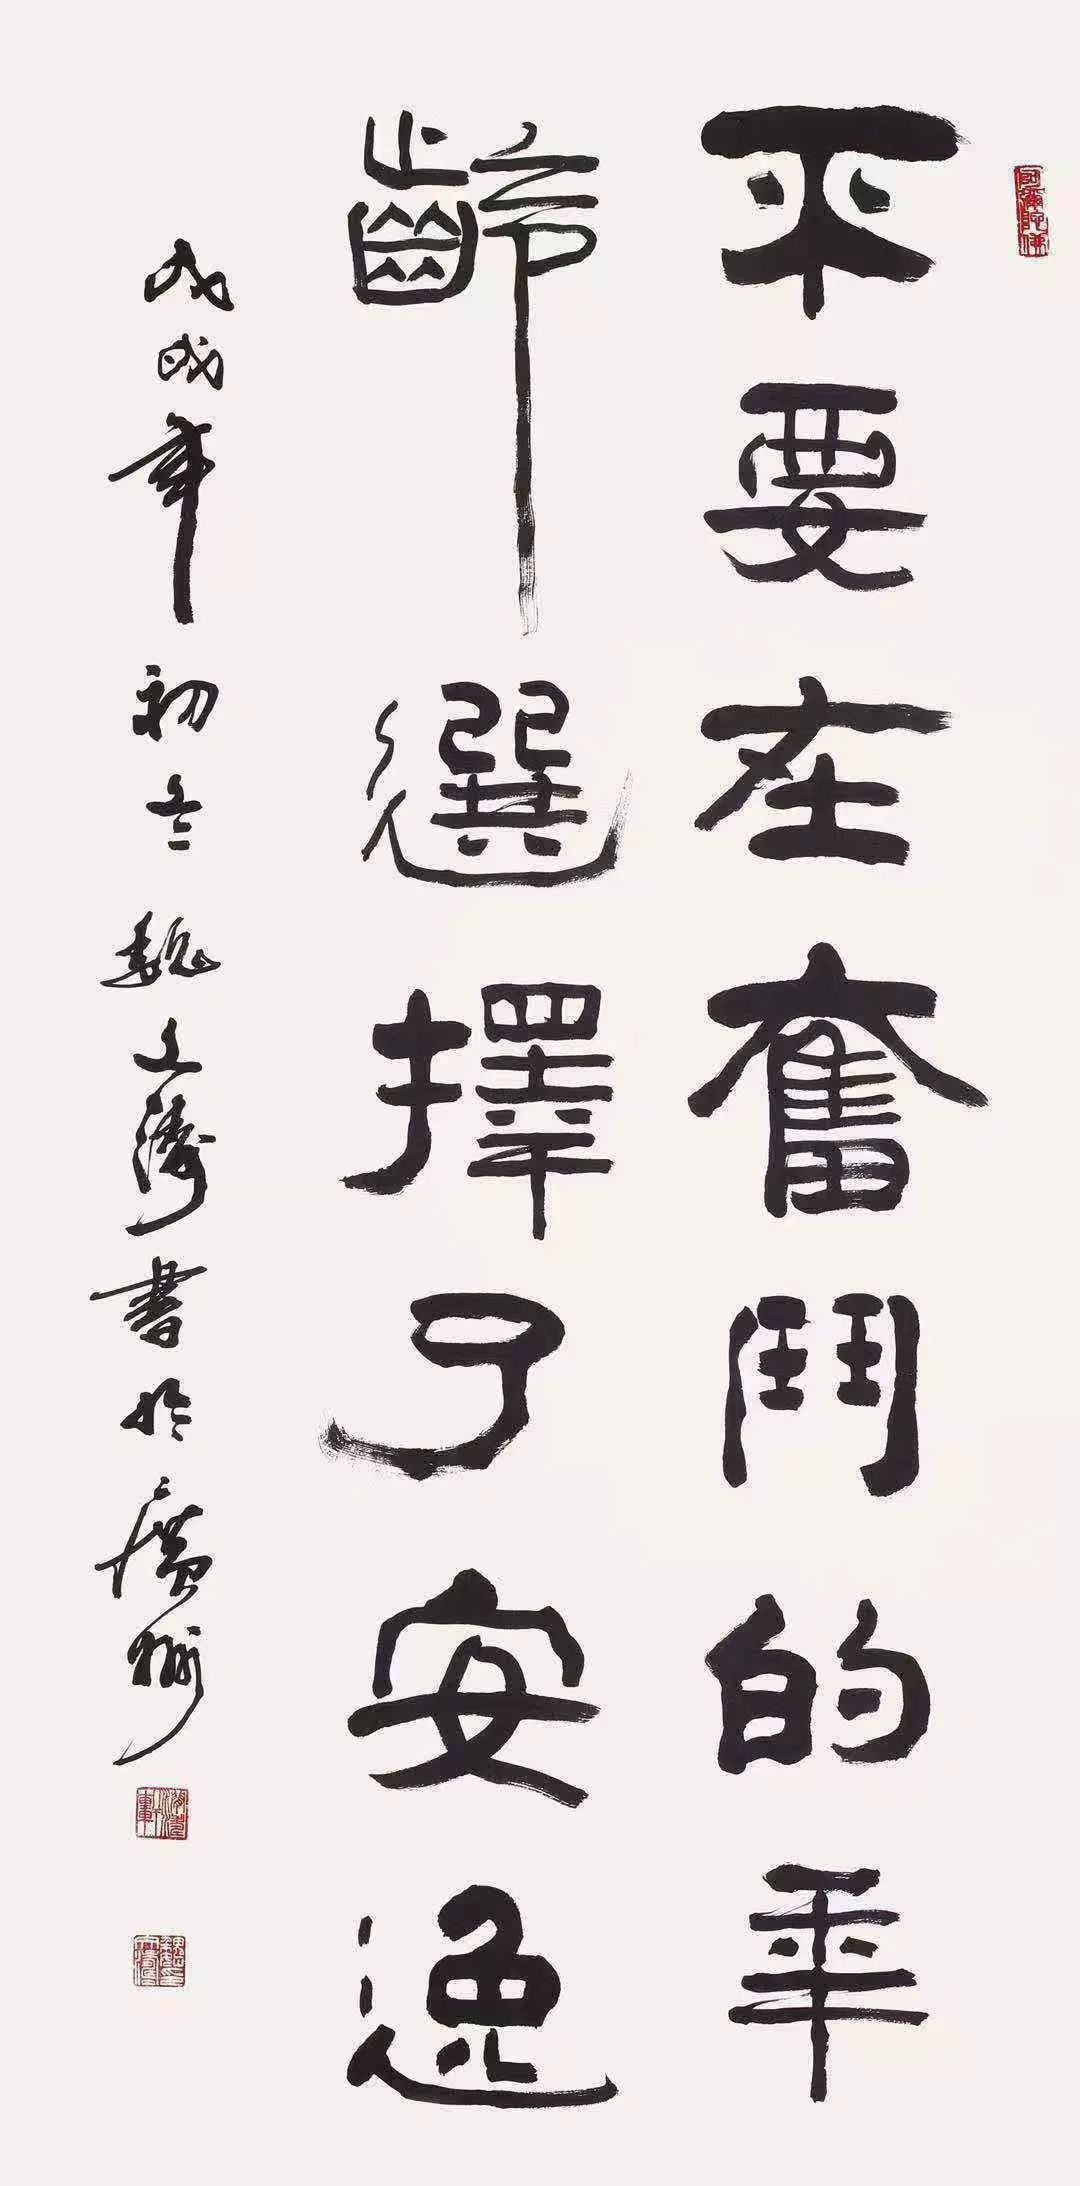 不要在奮鬥的年
齡選擇了安逸
戊戌年初冬魏工濤書於廣州